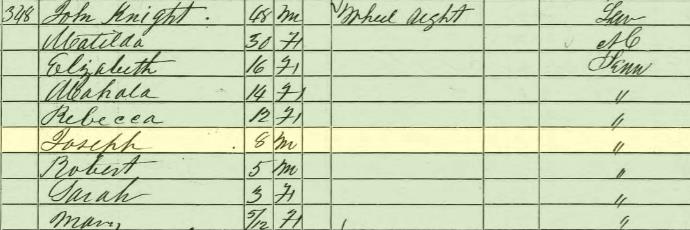 348 John Knight. 48 M Wheel Right
Matilda 30 F NC
Elizabeth 16 F Tenn
Mahala 14 F "
Rebecca 12 F "
Joseph 8 M "
Robert 5 M "
Sarah 3 F "
Mary 5/12 F "